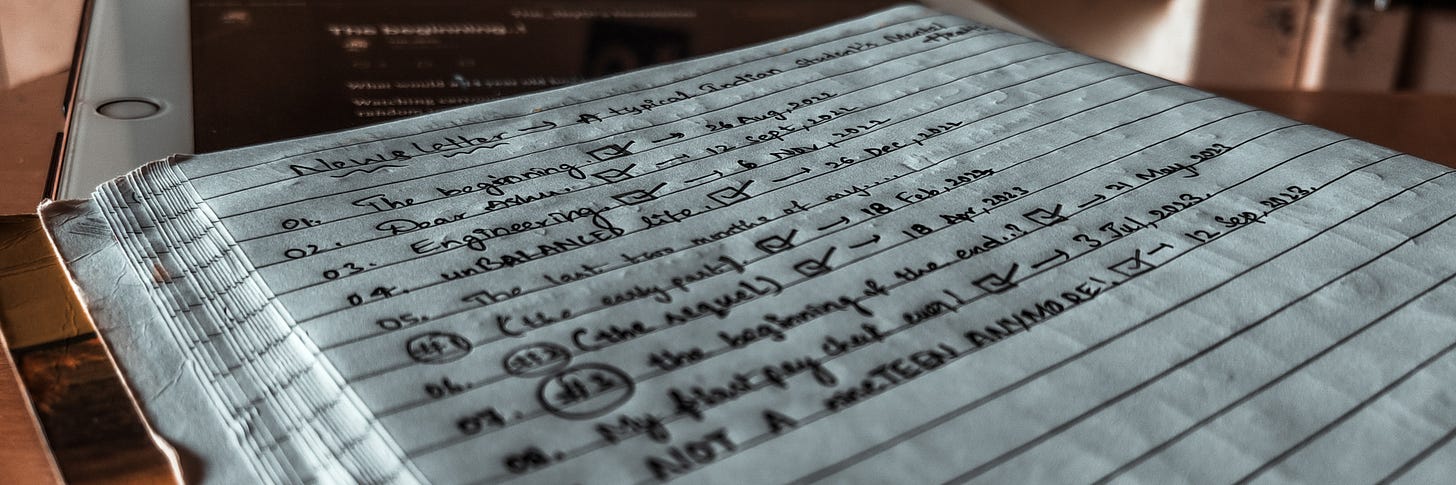 The beginning..!
What would
old
Newsletter → A typical Indian Student's Mental Health
01. The beginning. ☑ → 26 Aug, 2022
02. Dear Ashu. ☑ → 12 Sept, 2022
03. Engineering. ☑ → 6 Nov, 2022
04. unBALANCED life. ☑ → 26 Dec, 2022
05. The last two months of my....
#1 (the early past). ☑ → 18 Feb, 2023
06. #2 (the sequel) ☑ → 18 Apr, 2023
07. #3 the beginning of the end..? ☑ → 21 May, 2023
08. My first pay cheat ever! ☑ → 3 Jul, 2023.
NOT A nineTEEN ANYMORE!. ☑ → 12 Sep, 2023.